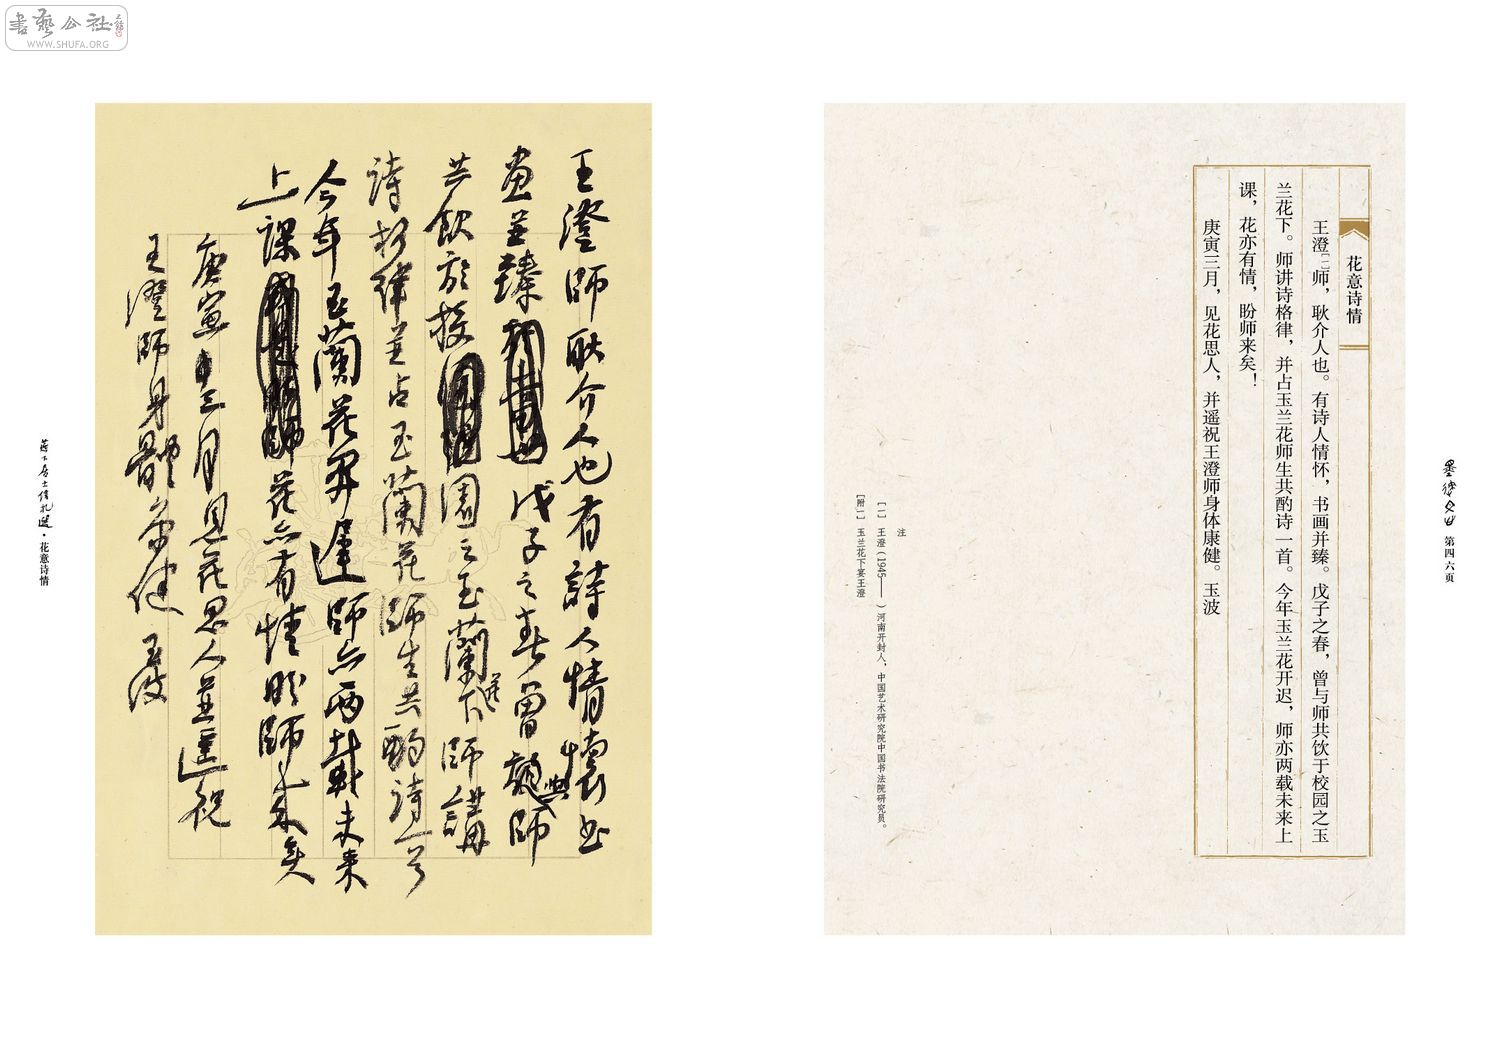 書藝公社
WWW.SHUFA.ORG
墨缘
第四六页
花意诗情
王澄[一]师，耿介人也。有诗人情怀，书画并臻。戊子之春，曾与师共饮于校园之玉
兰花下。师讲诗格律，并占玉兰花师生共酌诗一首。今年玉兰花开迟，师亦两载未来上
课，花亦有情，盼师来矣！
庚寅三月，见花思人，并遥祝王澄师身体康健。玉波
注
[一] 王澄（1945—— ）河南开封人，中国艺术研究院中国书法院研究员。
[附一] 玉兰花下宴王澄
王澄師耿介人也有詩人情懷书
畫並臻 戊子之春曾 與師
共飲於校園之玉蘭 下師講
詩 格律並占玉蘭花師生共酌詩一首
今年玉蘭花開遲師亦两載未来
上課 花亦有情盼師来矣
庚寅三月見花思人並遥祝
王澄師身體康健 玉波
居士信札选·花意诗情